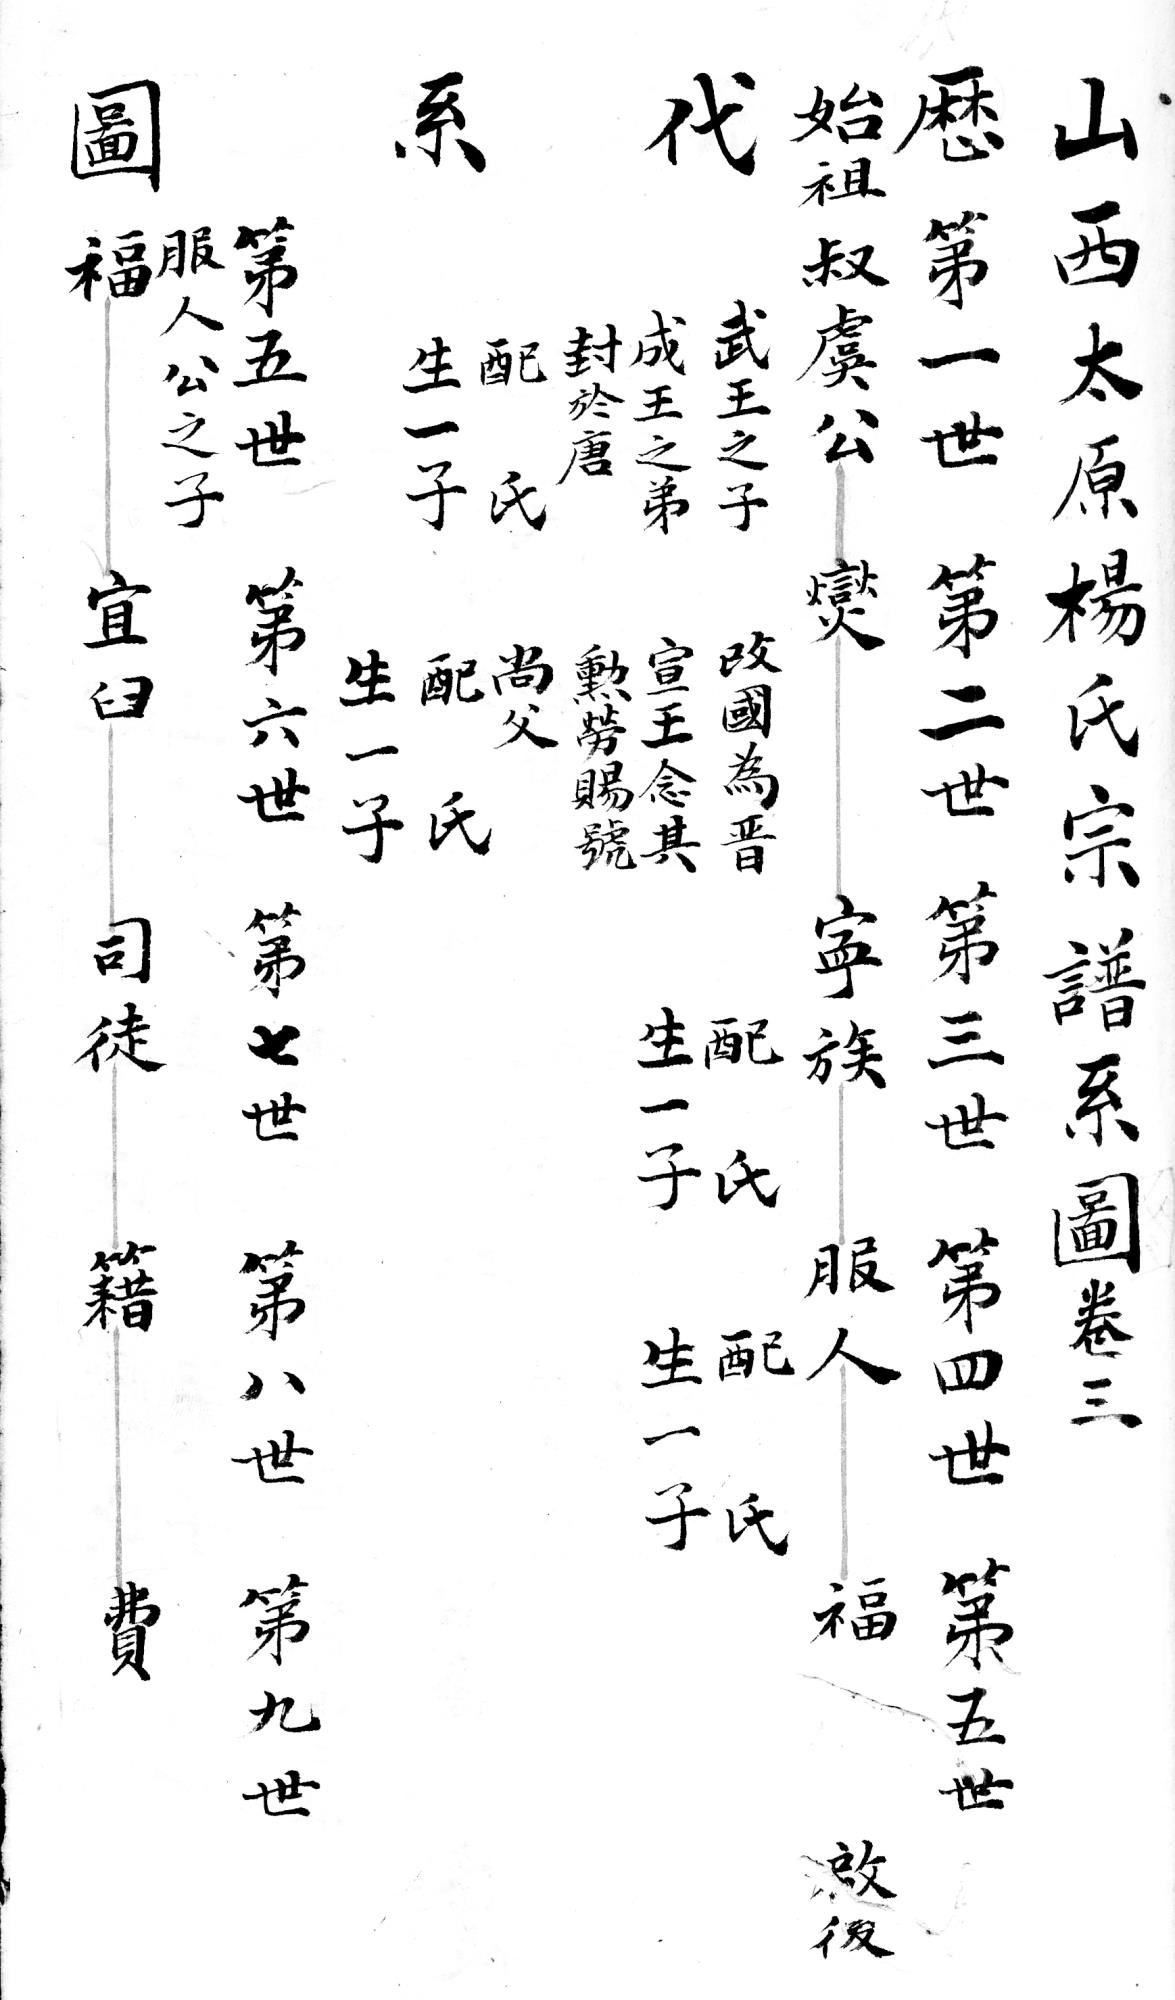 山西太原楊氏宗譜系圖卷三
歷代系圖
第一世
第二世
第三世
第四世
第五世
始祖叔虞公
燮
寧族
服人
福
啟後
武王之子
成王之弟
封於唐
配 氏
生一子
改國為晋
宣王念其
勲勞賜號
尚父
配 氏
生一子
配 氏
生一子
配 氏
生一子
第五世
第六世
第七世
第八世
第九世
服人公之子
福
宜臼
司徒
籍
費